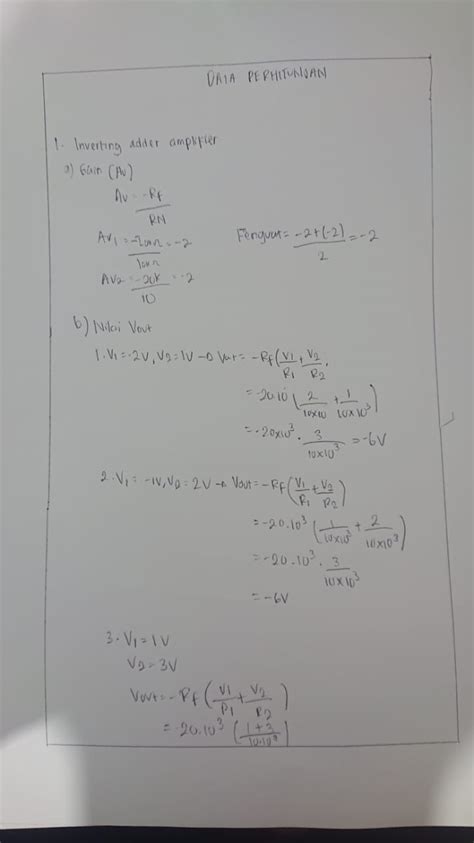 DATA PERHITUNGAN
1. Inverting adder amplifier
a) Gain (Av)
Av = -Rf / RN
Av1 = -20kΩ / 10kΩ = -2
Av2 = -20k / 10 = -2
Penguat = -2+(-2) / 2 = -2
b) Nilai Vout
1. V1 = -2V, V2 = 1V → Vout = -Rf (V1/R1 + V2/R2
= -20.10 (2/10x10 + 1/10x10³)
= -20x10³ . 3/10x10³ = -6V
2. V1 = -1V, V2 = 2V → Vout = -Rf (V1/R1 + V2/R2)
= -20.10³ (1/10x10³ + 2/10x10³)
= -20.10³ . 3/10x10³
= -6V
3. V1 = 1V
V2 = 3V
Vout = -Rf (V1/R1 + V2/R2)
= -20.10³ (1+3/10.10³)